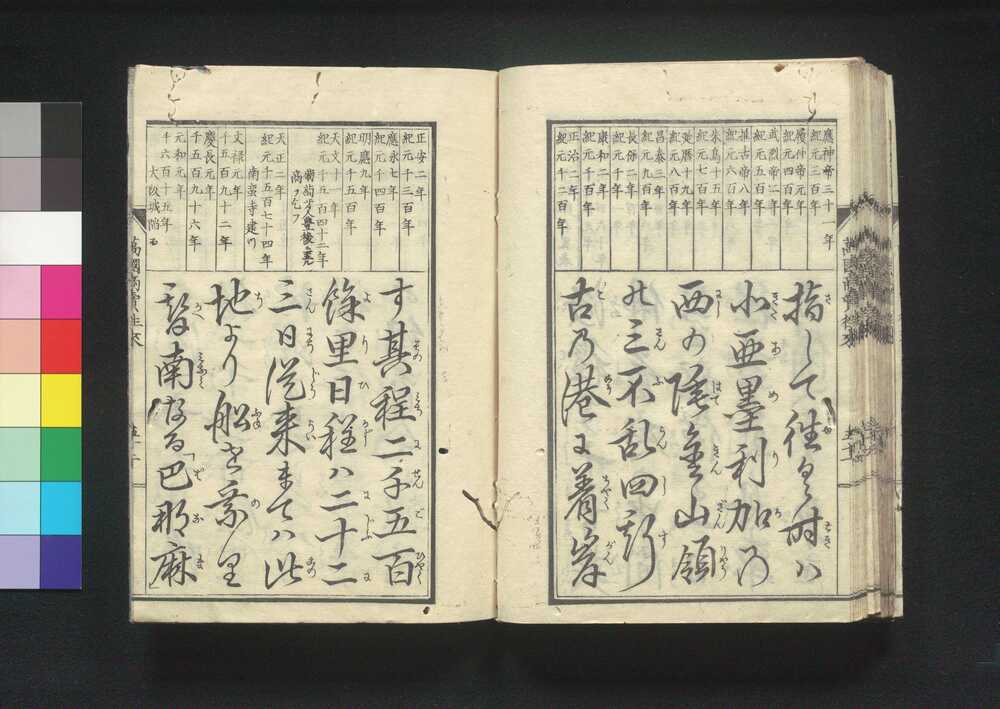 應神帝三十一年
紀元三百年
履仲帝元年
紀元四百年
武烈帝二年
紀元五百年
推古帝八年
紀元六百年
朱鳥十五年
紀元七百年
延暦十九年
紀元八百年
昌泰三年
紀元九百年
長保二年
紀元千年
康和二年
紀元千百年
正治二年
紀元千二百年
指して往く時ハ
北亜墨利加乃
西の陲金山領
の三不乱四斯
古乃港に着岸
正安二年
紀元千三百年
應永七年
紀元千四百年
明應九年
紀元千五百年
天文十一年
紀元千五百四十二年
天正二年
紀元千五百七十四年
南蛮寺建ツ
文禄元年
千五百九十二年
慶長元年
千五百九十六年
元和元年
千六百十五年
大阪城陥る
す其程二千五百
餘里日程ハ二十二
三日従来まてハ此
地より船を乗里
替南なる巴那麻
萬國商賣往来